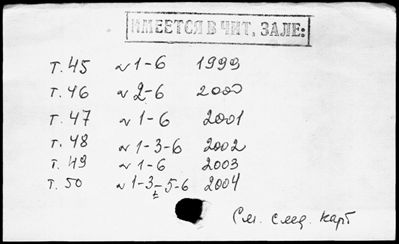 ИМЕЕТСЯ В ЧИТ. ЗАЛЕ:
т. 45 № 1-6 1999
т. 46 № 2-6 2000
т. 47 № 1-6 2001
т. 48 № 1-3-6 2002
т. 49 № 1-6 2003
т. 50 № 1-3-5-6 2004
См. след. карт